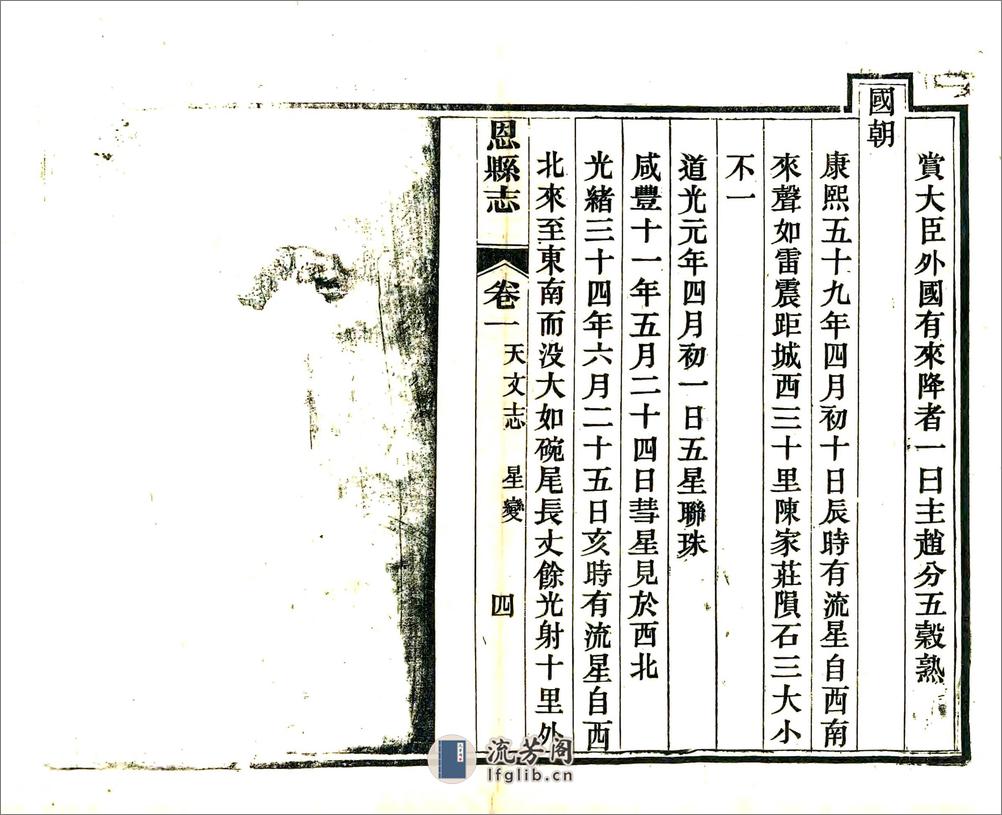 賞大臣外國有來降者一曰主趙分五穀熟
國朝
康熙五十九年四月初十日辰時有流星自西南
來聲如雷震距城西三十里陳家莊隕石三大小
不一
道光元年四月初一日五星聯珠
咸豐十一年五月二十四日彗星見於西北
光緒三十四年六月二十五日亥時有流星自西
北來至東南而没大如碗尾長丈餘光射十里外
恩縣志 卷一 天文志 星變 四
流芳阁
lfglib.cn